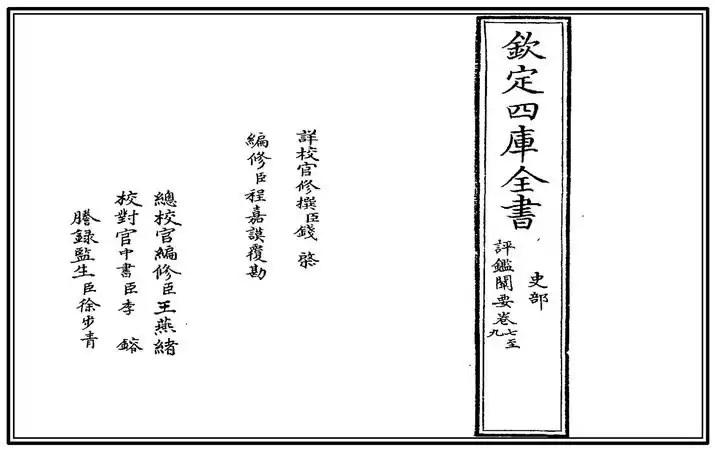 欽定四庫全書
史部
評鑑闡要卷七至九
詳校官修撰臣錢棨
編修臣程嘉謨覆勘
總校官編修臣王燕緒
校對官中書臣李鎔
謄録監生臣徐步青